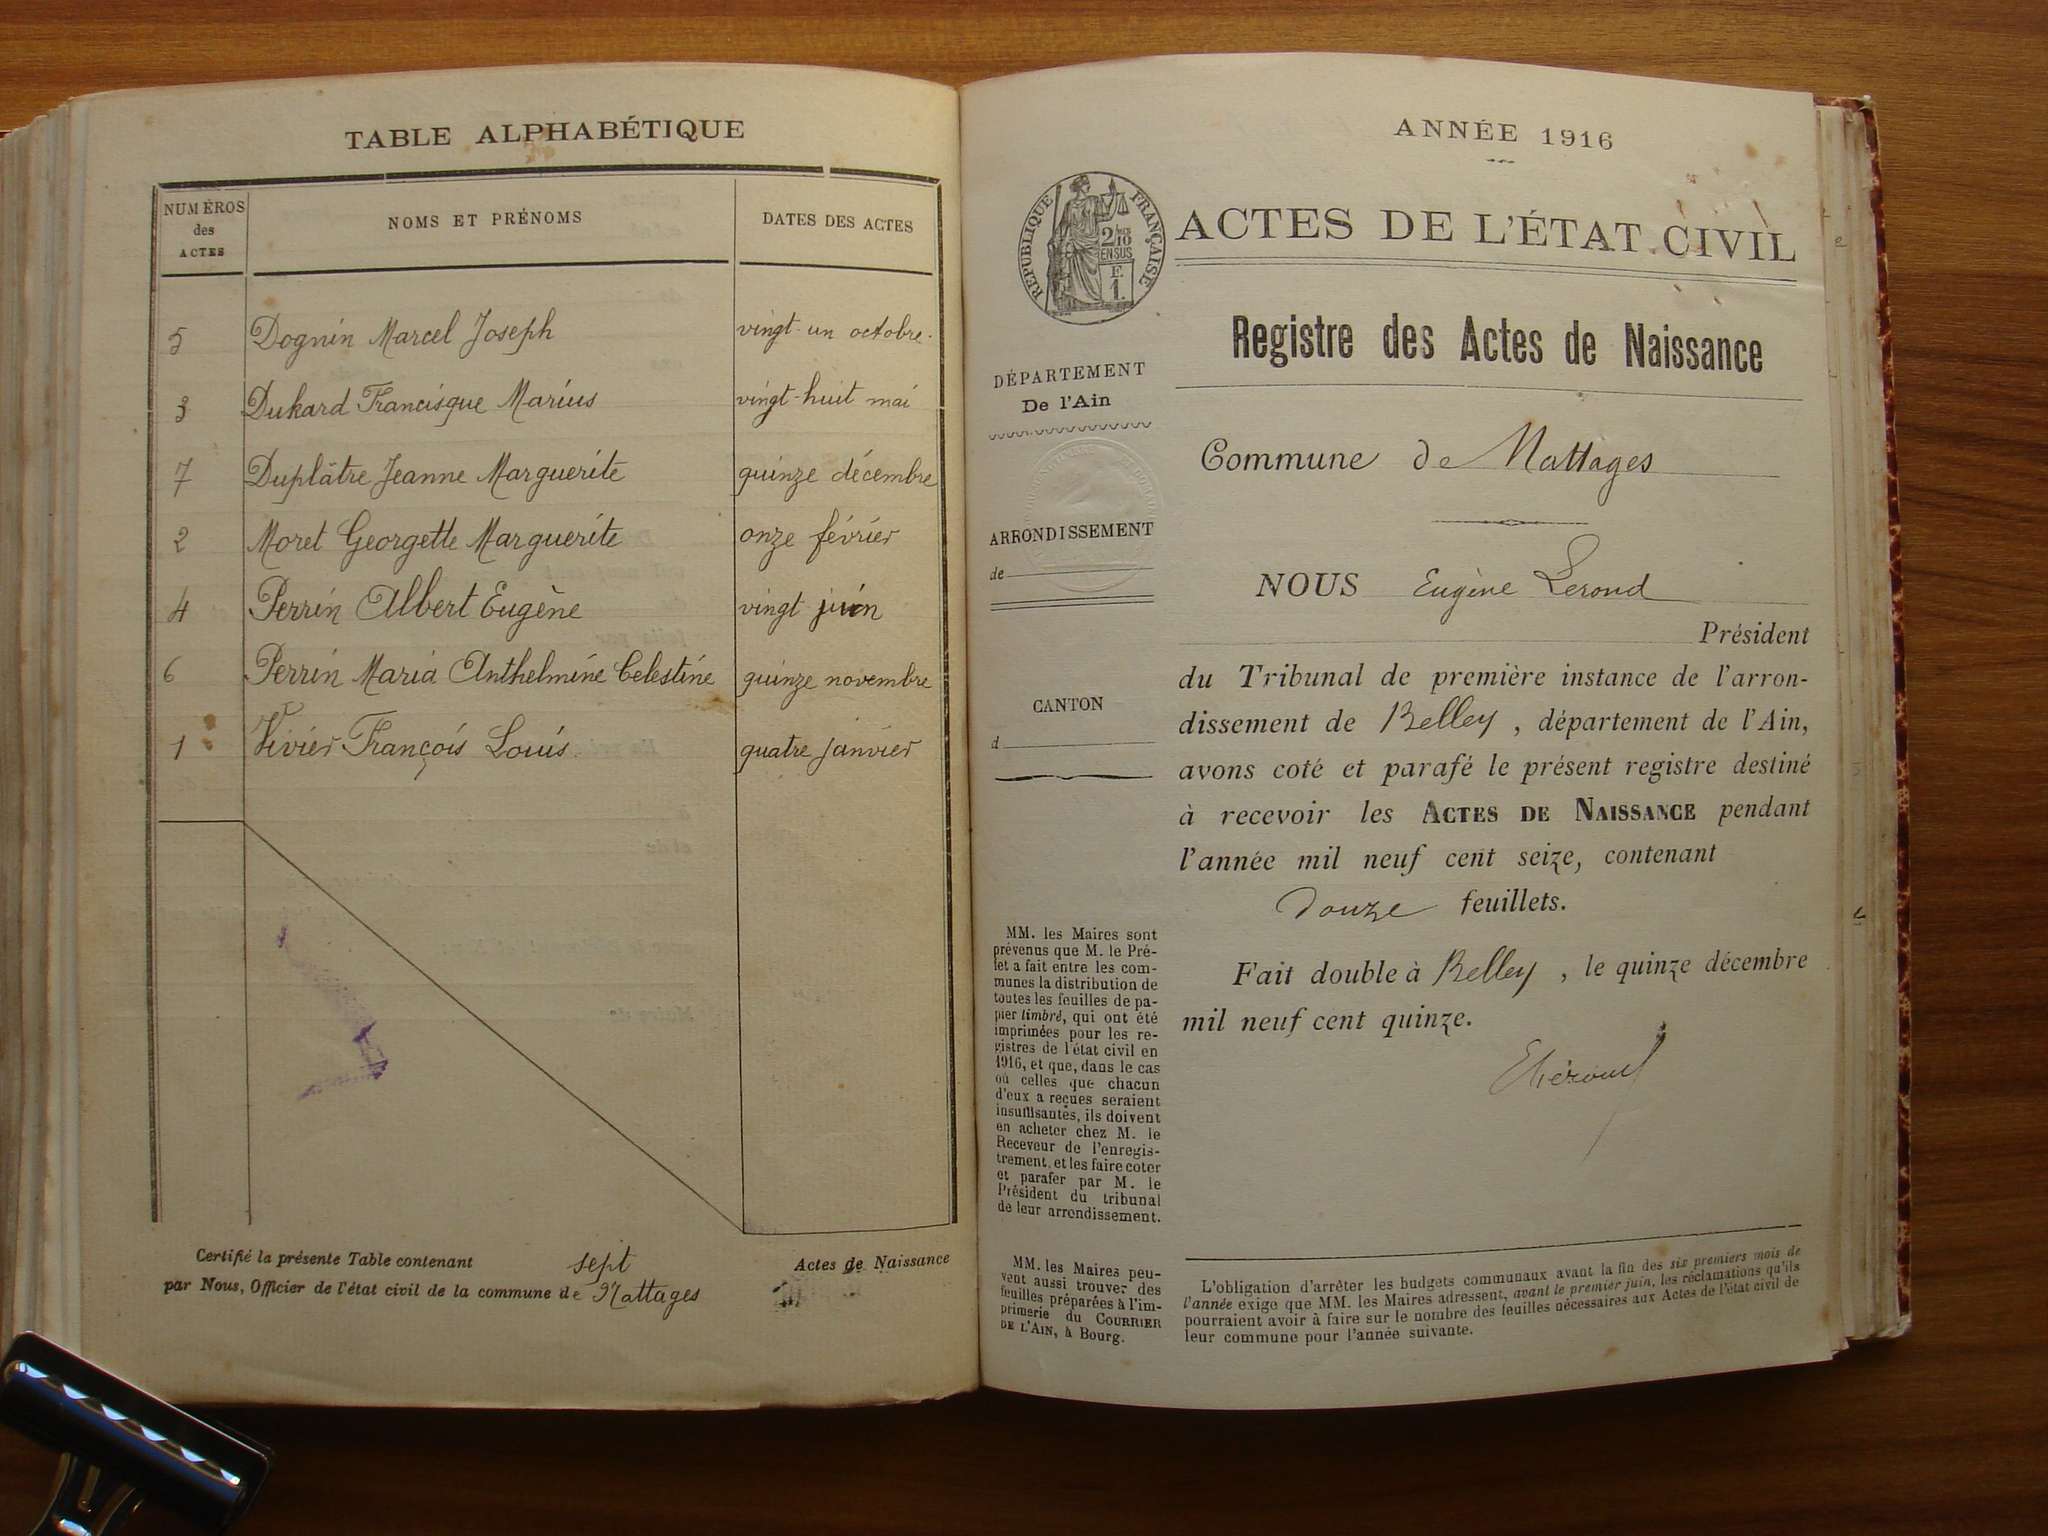 TABLE ALPHABÉTIQUE
NUMÉROS des ACTES
NOMS ET PRÉNOMS
DATES DES ACTES
5 Dognin Marcel Joseph vingt-un octobre
3 Dukard Francisque Marius vingt-huit mai
7 Duplâtre Jeanne Marguerite quinze décembre
2 Moret Georgette Marguerite onze février
4 Perrin Albert Eugène vingt juin
6 Perrin Maria Anthelmine Celestine quinze novembre
1 Vivier François Louis quatre janvier
Certifié la présente Table contenant sept Actes de Naissance
par Nous, Officier de l'état civil de la commune de Nattages
ANNÉE 1916
RÉPUBLIQUE FRANÇAISE
2/10
EN SUS
F.
1.
ACTES DE L'ÉTAT CIVIL
Registre des Actes de Naissance
DÉPARTEMENT
De l'Ain
ARRONDISSEMENT
de
CANTON
d
Commune de Nattages
NOUS Eugène Lerond
Président
du Tribunal de première instance de l'arron-
dissement de Belley, département de l'Ain,
avons coté et parafé le présent registre destiné
à recevoir les ACTES DE NAISSANCE pendant
l'année mil neuf cent seize, contenant
douze feuillets.
Fait double à Belley, le quinze décembre
mil neuf cent quinze.
MM. les Maires sont
prévenus que M. le Pré-
fet a fait entre les com-
munes la distribution de
toutes les feuilles de pa-
pier timbré, qui ont été
imprimées pour les re-
gistres de l'état civil en
1916, et que, dans le cas
où celles que chacun
d'eux a reçues seraient
insuffisantes, ils doivent
en acheter chez M. le
Receveur de l'enregis-
trement, et les faire coter
et parafer par M. le
Président du tribunal
de leur arrondissement.
MM. les Maires peu-
vent aussi trouver des
feuilles préparées à l'im-
primerie du COURRIER
DE L'AIN, à Bourg.
L'obligation d'arrêter les budgets communaux avant la fin des six premiers mois de
l'année exige que MM. les Maires adressent, avant le premier juin, les réclamations qu'ils
pourraient avoir à faire sur le nombre des feuilles nécessaires aux Actes de l'état civil de
leur commune pour l'année suivante.